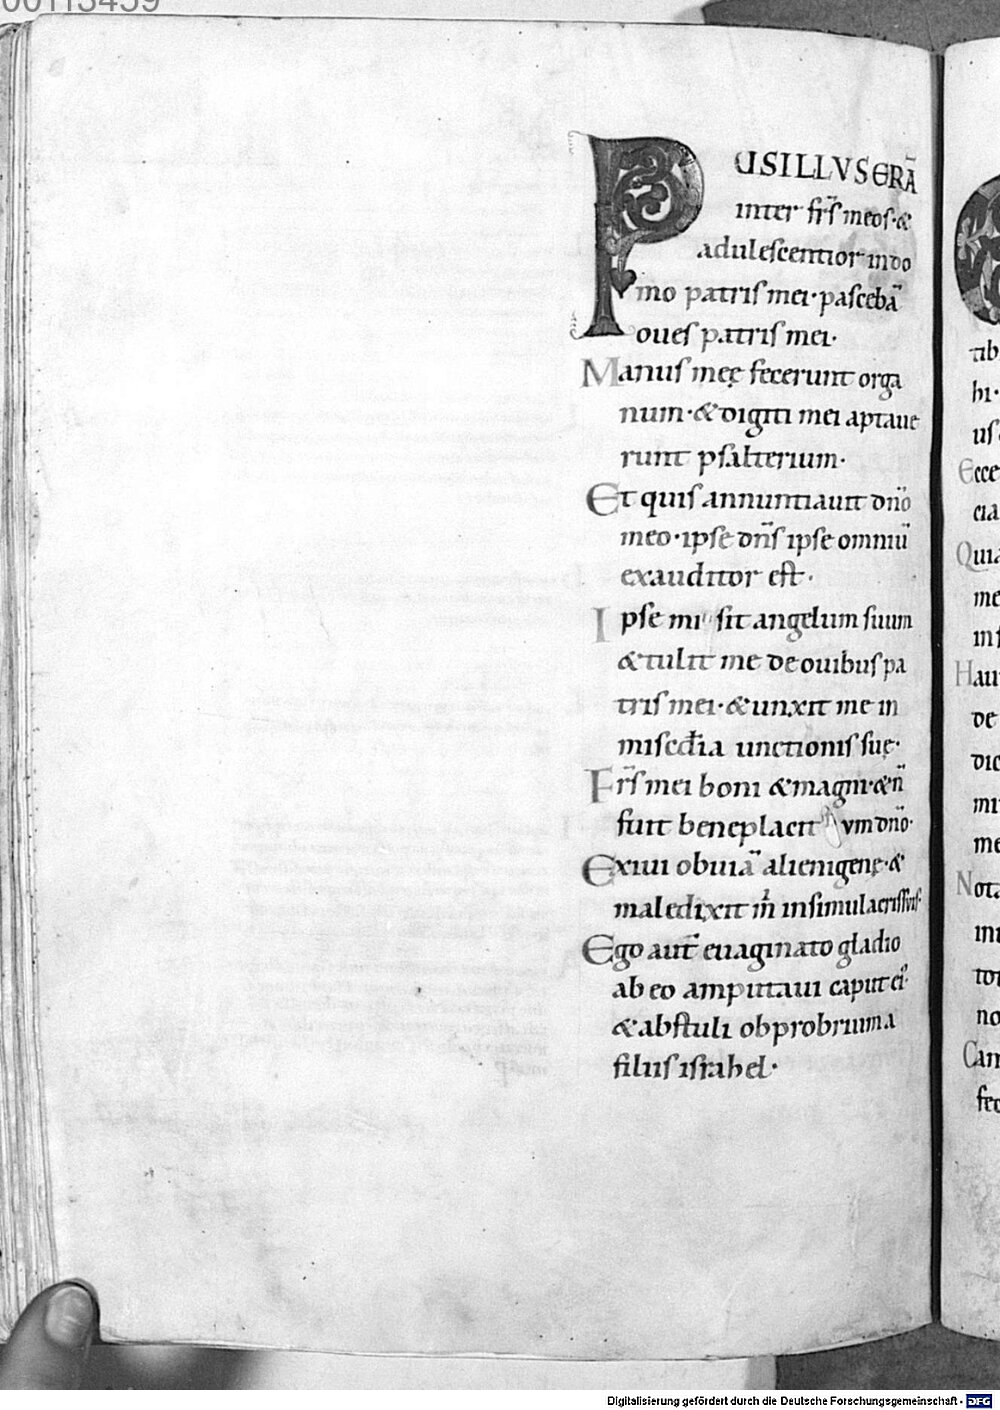 00113459
PUSILLVS ERĀ
inter fr̄s meos· &
adulescentior in do
mo patris mei· pascebā
oues patris mei·
Manus meę fecerunt orga
num· & digiti mei aptaue
runt psalterium·
Et quis annuntiauit dn̄o
meo· ipse dn̄s ipse omniū
exauditor est·
Ipse misit angelum suum
& tulit me de ouibus pa
tris mei· & unxit me in
misc̄dia unctionis suę·
Fr̄s mei boni & magni· & n̄
fuit beneplacit um dn̄o·
Exiui obuiā alienigenę· &
maledixit m̄ in simulacris suis·
Ego aut̄ euaginato gladio
ab eo amputaui caput ei·
& abstuli obprobrium a
filiis israhel·
tib
hi·
us
Ecce
cia
Quia
me
ins
Hau
de
dic
mi
me
Nota
ini
tor
no
Cam
fec
Digitalisierung gefördert durch die Deutsche Forschungsgemeinschaft - DFG